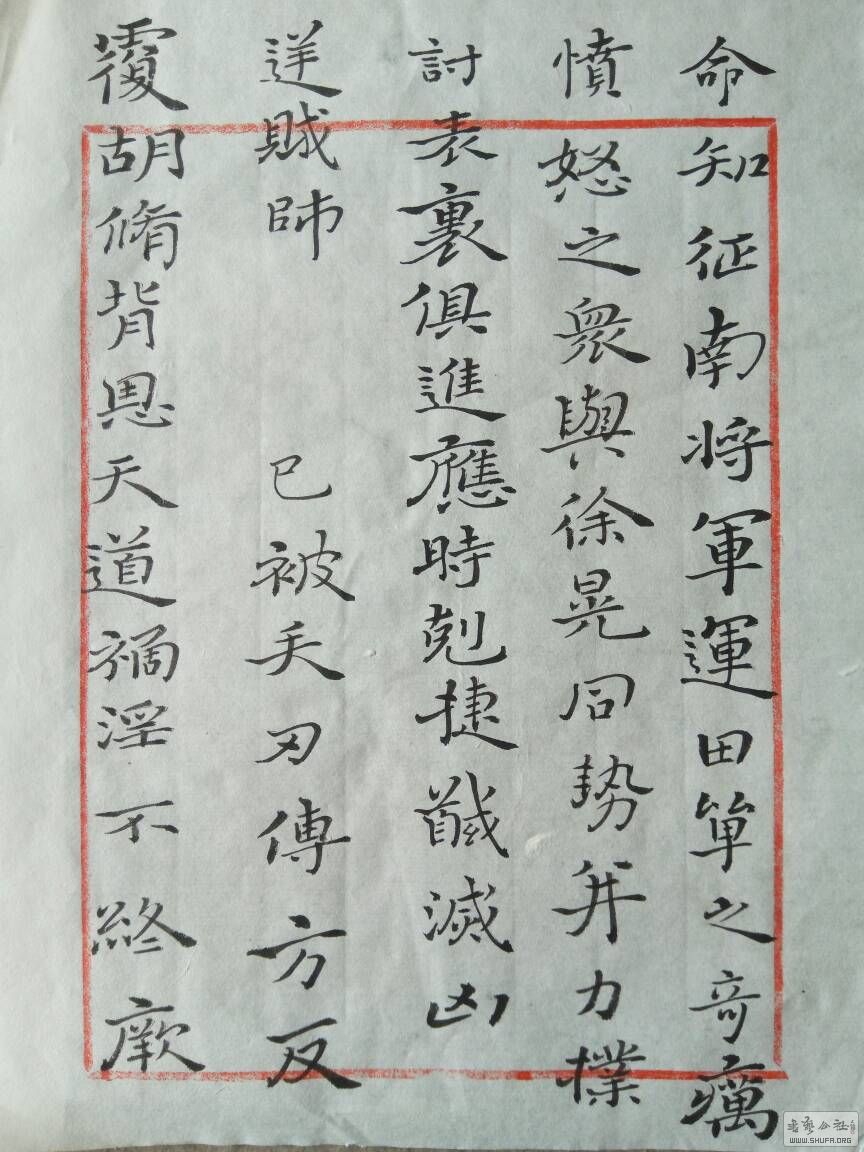 命知征南將軍運田單之奇厲
憤怒之衆與徐晃同勢并力撲
討表裏俱進應時剋捷馘滅凶
逆賊帥 已被矢刃傅方反
覆胡脩背恩天道禍淫不終厥
書藝公社
WWW.SHUFA.ORG